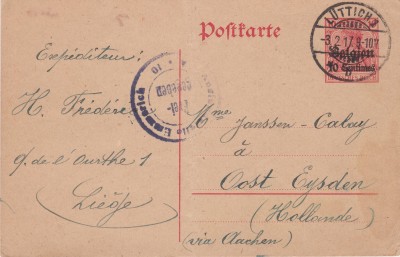 Postkarte
LÜTTICH
-3.2.17. 8-10V
Belgien
10 Centimes
Expéditeur:
H. Frédéric
q. de l'ourthe 1
Liège
Emmerich
Frei-
gegeben
Mme Janssen-Calay
à
Oost Eysden
(Hollande)
(via Aachen)